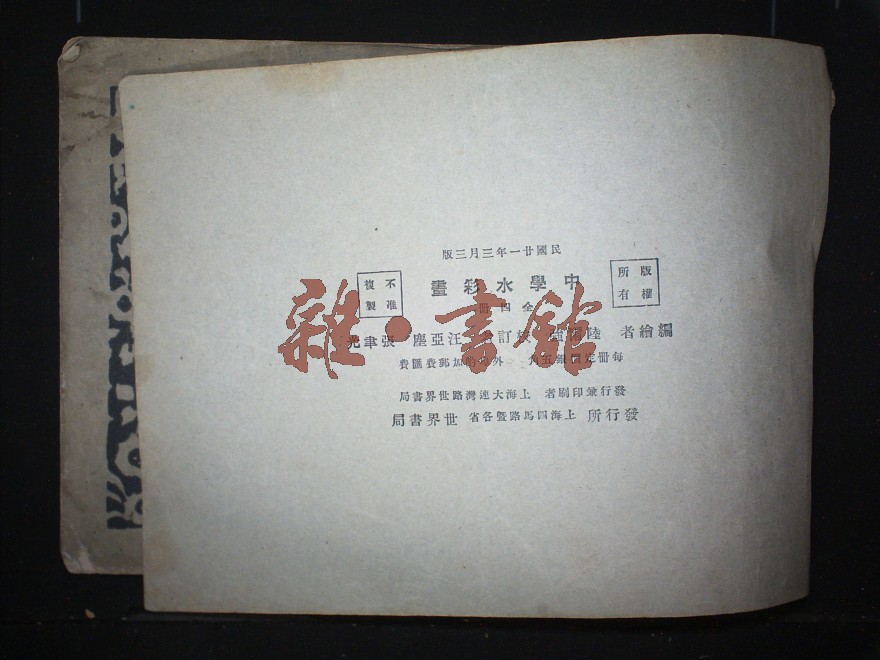 民國廿一年三月三版
版權所有
中學水彩畫
不准複製
全四冊
編繪者 陸 校訂 汪亞塵 張聿光
每冊定價銀 角 外埠酌加郵費匯費
發行兼印刷者 上海大連灣路世界書局
發行所 上海四馬路暨各省 世界書局
雜·書館